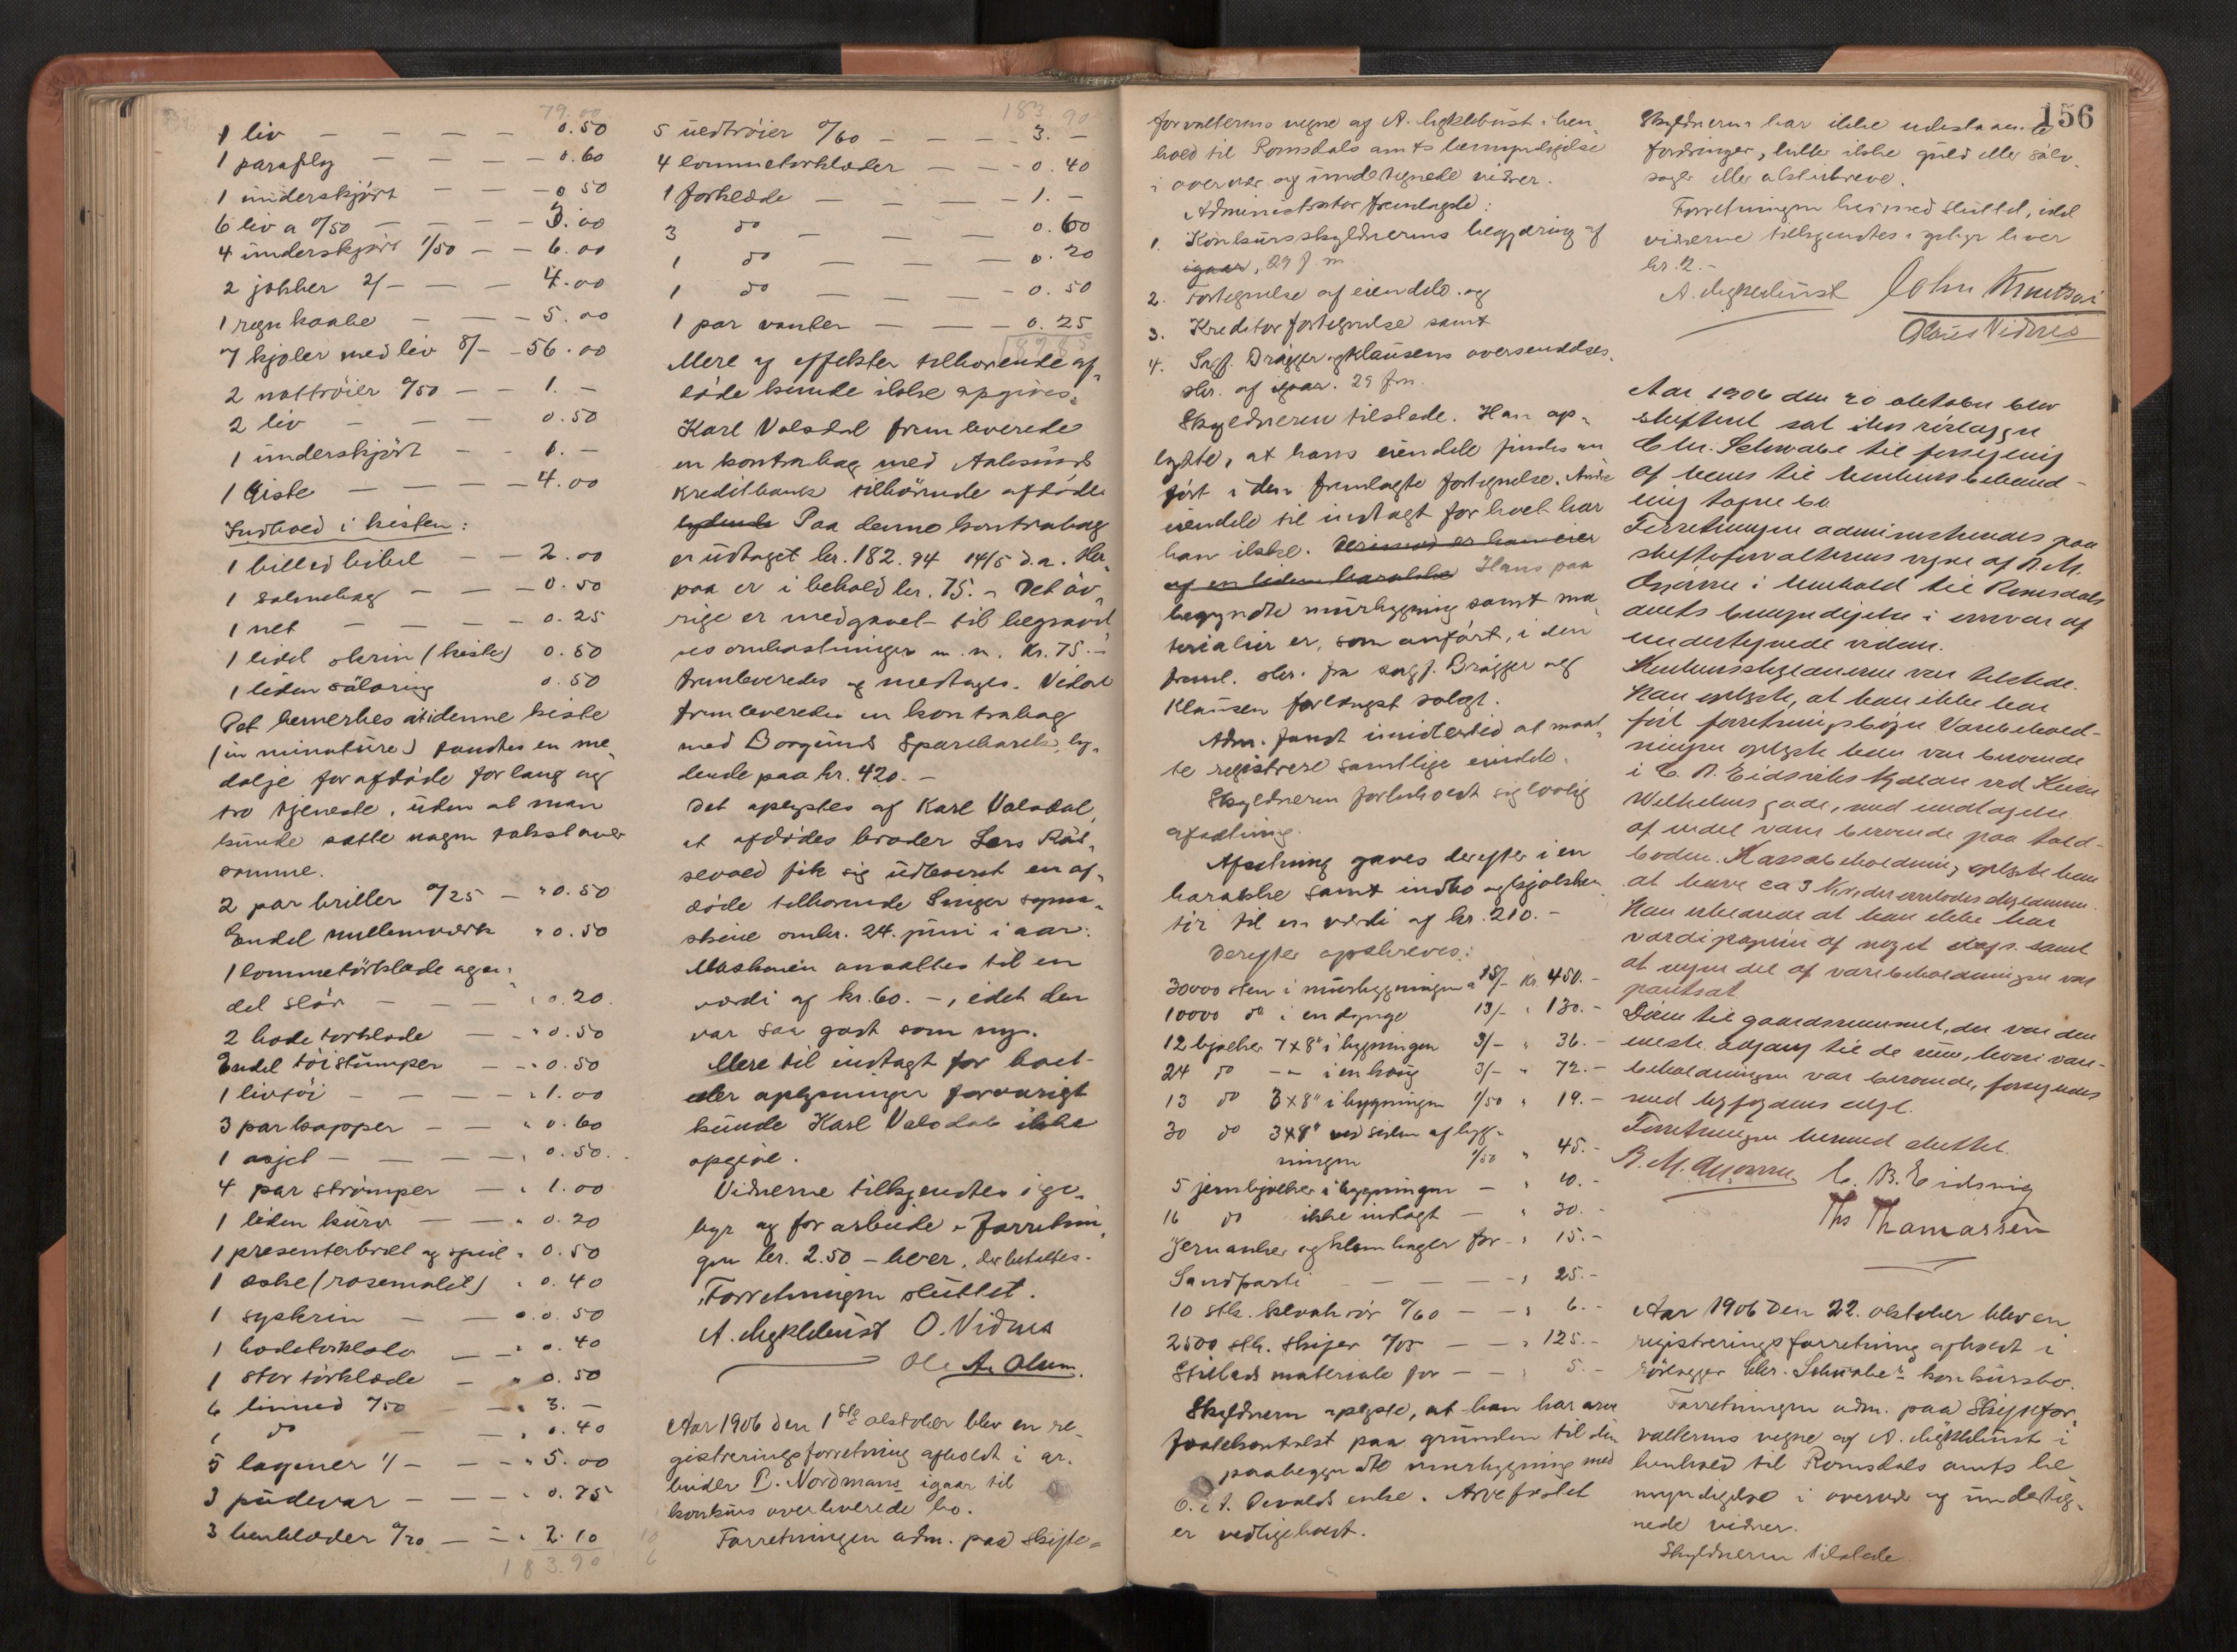 79.00
1 liv — — — — 0.50
1 paraply — — — 0.60
1 underskjört — — — 0 50
6 liv a 0/50 — — — 3.00
4 underskjört 1/50 — — 6.00
2 jakker 2/- — — — 4.00
1 regnkaabe — — — 5.00
7 kjoler med liv 8/- — 56.00
2 nattröier 0/50 — — 1. —
2 liv — — — 0.50
1 underskjört — — 1. —
1 kiste — — — 4.00
Indhold i kisten:
1 billedbibel — — 2.00
1 salmebog — — — 0.50
1 net — — — 0.25
1 lidet skrin (kiste) 0.50
1 liden sölvring 0.50
Det bemerkes at i denne kiste
(in minature) fandtes en me-
dalje for afdöde for lang og
tro tjeneste, uden at man
kunde sætte nogen takst over
samme.
2 par briller 0/25 — " 0.50
Endel mellemværk " 0.50
1 lommetörklæde og en-
del slör — — — " 0.20.
2 hodetorklæde — " 0.50
Endel töistumper — " 0.50
1 livtöi — — — — " 1.00
3 par kapper — — " 0.60
1 asjet — — — — " 0.50.
4 par strömper — " 1.00
1 liden kurv — — " 0.20
1 presenterbræt og speil " 0.50
1 æske (rosemalet) " 0.40
1 syskrin — — " 0.50
1 hodetorklæde — " 0.40
1 stor törklæde — " 0.50
6 linned 0/50 — " 3. —
1 do — " 0.40
5 lagener 1/- — — " 5.00
3 pudevar — — — " 0.75
3 benklæder 0/70 — — " 2.10
183.90
183 90
5 uldtröier 0/60 — — — 3. —
4 lommetorklæder — — 0.40
1 forklæde — — — — 1. —
3 do — — — 0.60
1 do — — — 0.20
1 do — — — 0.50
1 par vanter — — — 0.25
189.85
Mere og effekter tilhorende af-
döde kunde ikke opgives.
Karl Valsdal fremleverede
en kontrabog med Aalesunds
Kreditbank tilhörende afdöde
lydende Paa denne kontrabog
er udtaget kr. 182.94 14/5 d.a. Her-
paa er i behold kr. 75. — Det öv-
rige er medgaaet til begravel-
ses omkostninger m.m. Kr. 75. —
fremleveredes og medtages. Videre
fremleveredes en kontrabog
med Borgund Sparebank, ly-
dende paa kr. 420. —
Det oplystes af Karl Valsdal,
at afdödes broder Lars
sevold fik sig udleveret en af-
döde tilhorende Singer syma-
skine omkr. 24. juni i aar.
Maskinen ansattes til en
værdi af kr. 60. —, idet den
var saa godt som ny.
Mere til indtægt for boet
eller oplysninger forövrigt
kunde Karl Valsdal ikke
opgive.
Vidnerne tilkjendtes i ge-
byr og for arbeide v. forretnin-
gen kr. 2.50 — hver, der betaltes.
Forretningen sluttet.
A. Myklebust O. Vidnes
Ole A. Olsen.
Aar 1906 den 1ste oktober blev en re-
gistreringsforretning afholdt i ar-
beider P. Nordmans igaar til
konkurs overleverede bo.
Forretningen adm. paa Skifte-
156
forvalterens vegne af A. Myklebust i hen-
hold til Romsdals amts bemyndigelse
i overvær og undertegnede vidner.
Administrator fremlagde:
1. Konkursskyldnerens begjæring af
igaar, 29 f.m.
2. Fortegnelse af eiendele og
3. Kreditorfortegnelse samt
4. Sagf. Brägger og Klausens oversendelses-
skr. af igaar. 29 f.m.
Skyldneren tilstede. Han op-
lyste, at hans eiendele findes an-
fört i den fremlagte fortegnelse. Andre
eiendele til indtægt for boet har
han ikke. Derimod er han eier
af en liden barakke Hans paa-
begyndte murbygning samt ma-
terialier er, som anfört, i den
freml. skr. fra sagf. Brägger og
Klausen forlængst solgt.
Adm. fandt imidlertid at maat-
te registrere samtlige eiendele.
Skyldneren forbeholdt sig lovlig
afsætning.
Afsetning gaves derefter i en
barakke samt indbo og kjökken-
töi til en værdi af kr. 210. —
Derefter opskreves:
30000 sten i murbygningen a 15/- Kr. 450. —
10000 do i en dynge 13/- " 130. —
12 bjelker 7x8" i bygningen 3/- " 36. —
24 do — " — i en haug 3/- " 72. —
13 do 3x8" i bygningen 1/50 " 19. —
30 do 3x8" ved siden af byg-
ningen 1/50 " 45. —
5 jernbjelker i bygningen — " 10. —
16 do ikke indlagt — " 30. —
Jernanker og klamhager for — " 15. —
Sandparti — — — — " 25. —
10 stk. kloakrör 0/60 — — " 6. —
2500 stk. skifer 0/05 — — " 125. —
Stillads materiale for — — " 5. —
Skyldneren oplyste, at han har arve-
festekontrakt paa grunden til den
paabegyndte murbygning med
O. & A. Devolds enke. Arvefestet
er vedligeholdt.
Skyldneren har ikke udestaaende
fordringer, heller ikke guld eller sölv-
sager eller obstebreve.
Forretningen hermed sluttet, idet
vidnerne tilkjendtes i gebyr hver
kr. 2. —
A. Myklebust John Knutsen
Olaus Vidnes
Aar 1906 den 20 oktober blev
skifteret sat i hos rörlægger
Chr. Schwabe til forsegling
af hans til konkursbehand-
ling tagne bo.
Forretningen administreredes paa
skifteforvalterens vegne af B.M.
i henhold til Romsdals
amts bemyndigelse i overvær af
undertegnede vidner.
Konkursskyldneren var tilstede.
Han oplyste, at han ikke har
fört forretningsböger. Varebehold-
ningen oplyste han var beroende
i C. B. Eidsviks kjælder ved Keiser
Wilhelms gade, med undtagelse
af endel varer beroende paa told-
boden. Kassabeholdning oplyste han
at have ca 3 Kr, der overlodes skyldneren.
Han erklærede at han ikke har
værdipapirer af noget slags samt
at ingen del af varebeholdningen var
pantsat.
Dören til gaardsrummet, der var den
eneste adgang til de rum, hvori vare-
beholdningen var beroende, forsegledes
med byfogdens segl.
Forretningen hermed sluttet.
C. B. Eidsvig
Ths Thomassen
Aar 1906 den 22. oktober blev en
registreringsforretning afholdt i
rörlægger Chr. Schwabes konkursbo.
Forretningen adm. paa Skiftefor-
valterens vegne af A. Myklebust i
henhold til Romsdals amts be-
myndigelse i overvær og underteg-
nede vidner.
Skyldneren tilstede.